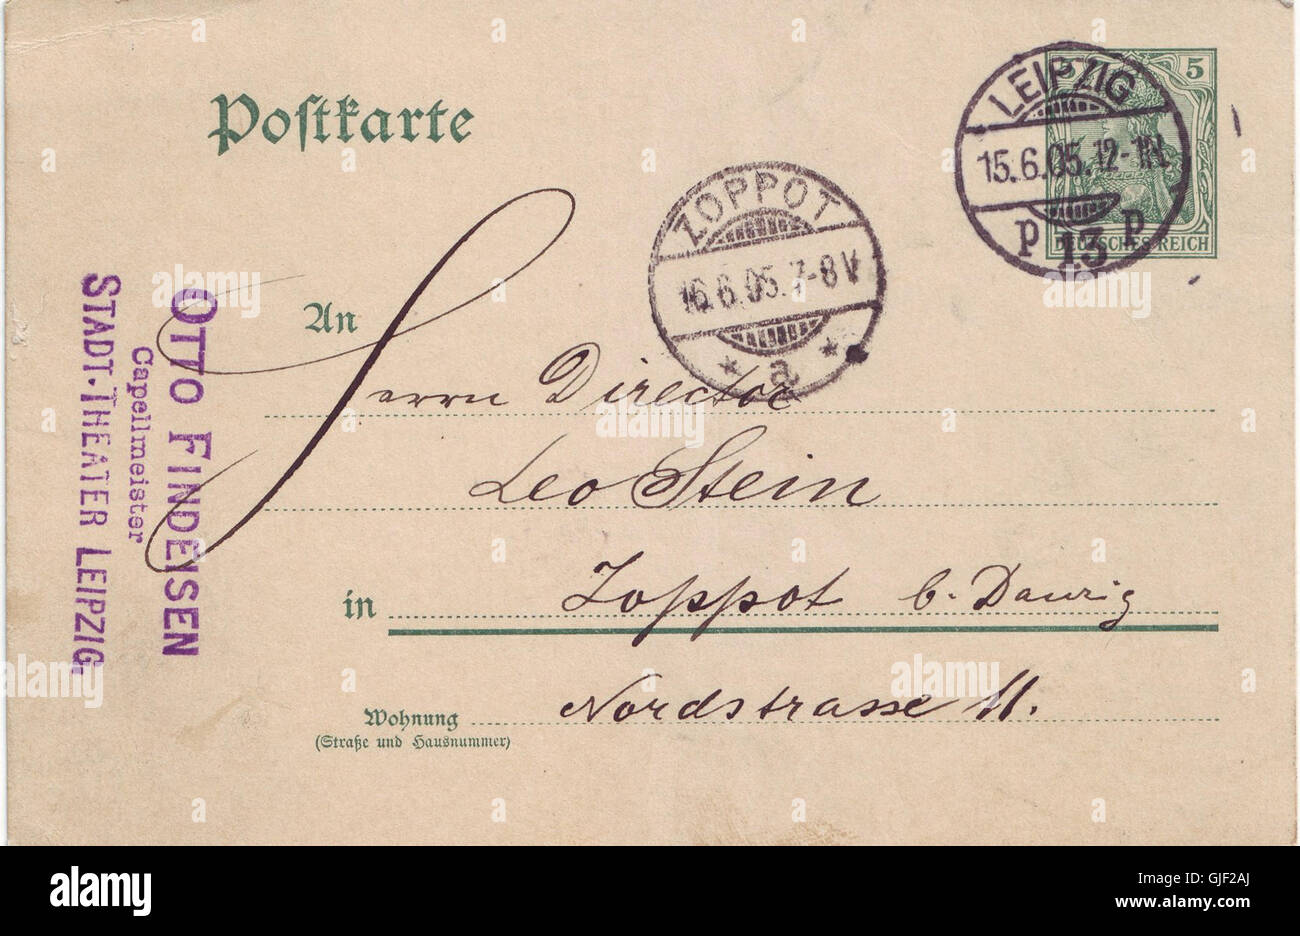 Postkarte
LEIPZIG
15.6.05.12-1N.
p 13 p
5
DEUTSCHES REICH
ZOPPOT
16.6.05.7-8V
* a *
OTTO FINDEISEN
Capellmeister
STADT-THEATER LEIPZIG.
An
Herrn Director
Leo Stein
in Zoppot b. Danzig
Wohnung Nordstrasse 11.
(Straße und Hausnummer)
alamy
a
alamy stock photo
GJF2AJ
www.alamy.com